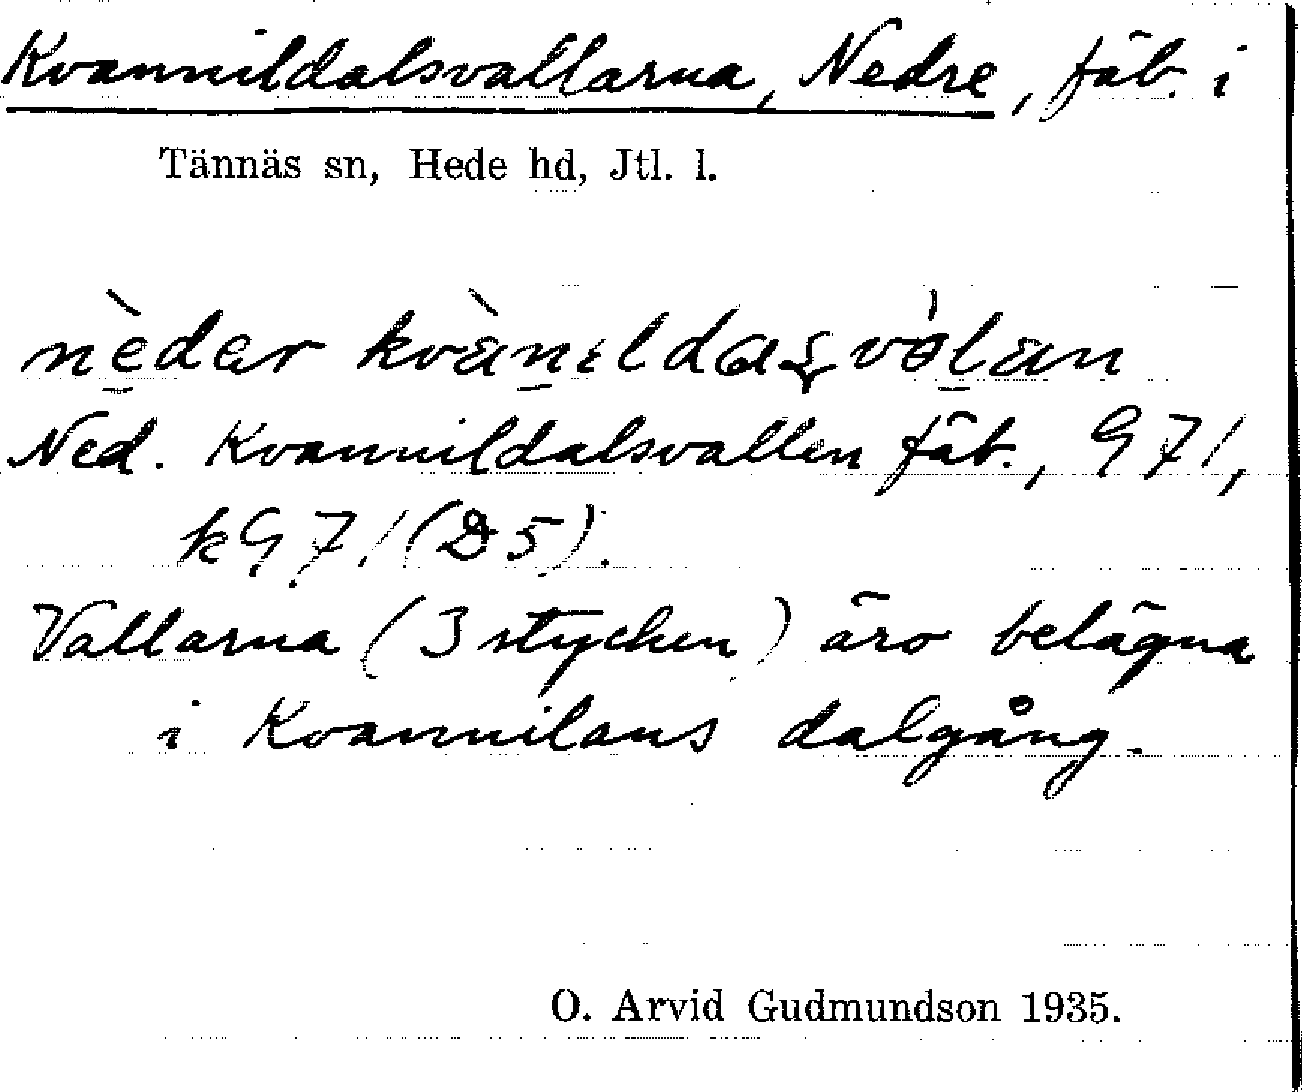 Kvannildalsvallarna, Nedre, fäb. i
Tännäs sn, Hede hd, Jtl. l.
Ned. Kvannildalsvallen fäb., G 71,
kG 71 (D5).
Vallarna (3 stycken) äro belägna
i Kvannilans dalgång.
O. Arvid Gudmundson 1935.